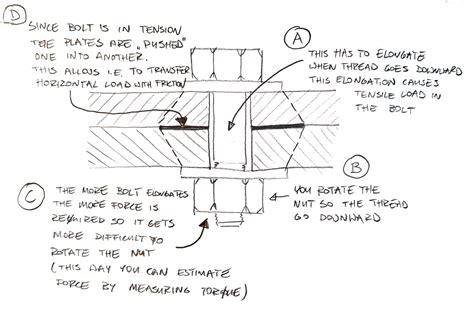 D
SINCE BOLT IS IN TENSION
THE PLATES ARE „PUSHED"
ONE INTO ANOTHER.
THIS ALLOWS I.E. TO TRANSFER
HORIZONTAL LOAD WITH FRICTION
A
THIS HAS TO ELONGATE
WHEN THREAD GOES DOWNWARD
THIS ELONGATION CAUSES
TENSILE LOAD IN
THE BOLT
B
YOU ROTATE THE
NUT SO THE THREAD
GO DOWNWARD
C
THE MORE BOLT ELONGATES
THE MORE FORCE IS
REQUIRED SO IT GETS
MORE DIFFICULT TO
ROTATE THE NUT
(THIS WAY YOU CAN ESTIMATE
FORCE BY MEASURING TORQUE)